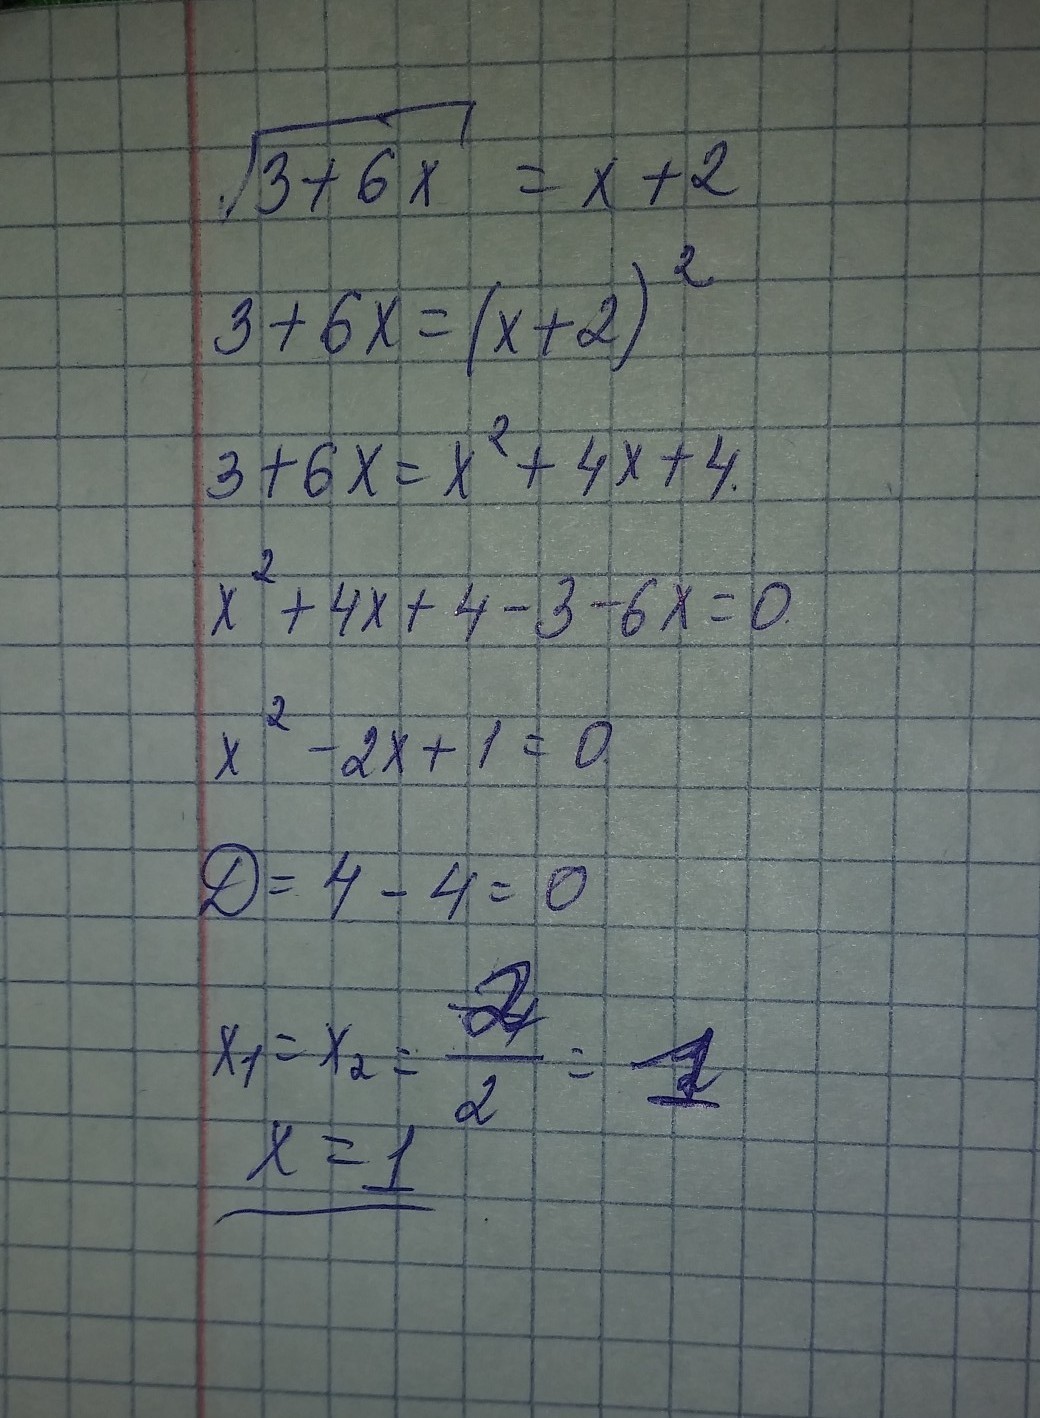 √3+6x = x+2
3+6x=(x+2)²
3+6x=x²+4x+4.
x²+4x+4-3-6x=0.
x²-2x+1=0.
D=4-4=0
x₁=x₂=2/2=1
x=1